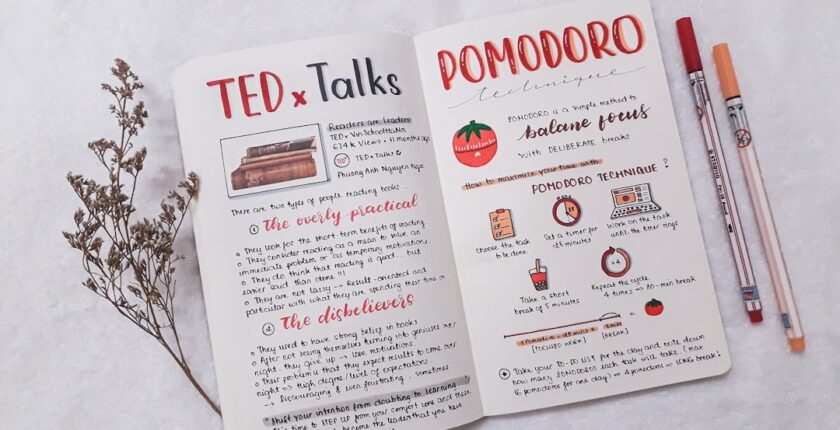 TED x Talks
Readers are Leaders
TEDx VinSchoolHaNa
674k Views • 11 months ago
TED TEDxTalks
Phuong Anh Nguyen Ngoc
There are two types of people reading books...
① The overly practical
They look for the short-term benefits of reading
They consider reading as a mean to solve an
immediate problem or as temporary motivations
They do think that reading is good... but
easier said than done !!!
They are not lazy → Result-oriented and
particular with what they are spending their time on
② The disbelievers
They used to have strong belief in books
After not seeing themselves turning into geniuses over
night, they give up → lose motivations
Their problem is that they expect results to come over
night → high degree/level of expectations
→ Discouraging & even frustrating, sometimes
"Shift your intention from doubting to learning
It's time to STEP up from your comfort zone and these
become the leader that you have
POMODORO
technique
POMODORO is a simple method to
balane focus
with DELIBERATE breaks.
How to maximize your time with
POMODORO TECHNIQUE ?
Choose the task
to be done
Set a timer for
25 minutes
Work on the task
until the timer rings
x4
Take a short
break of 5 minutes
Repeat the cycle
4 times → 30-min break
1 Pomodoro = 25 mins + 5 mins
(FOCUSED WORK) (BREAK)
Take your TO-DO LIST for the day and note down
how many POMODOROS each task will take. (max
16 pomodoro for one day) → 4 pomodoro w/ LONG break!